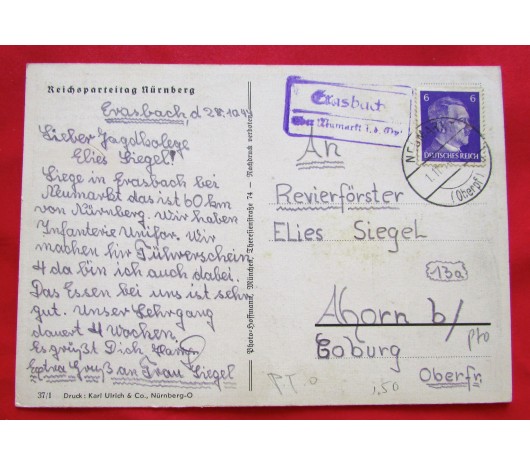 Reichsparteitag Nürnberg
Erasbach, d 28.10.
Lieber Jagdkolege
Elies Siegel!
Liege in Erasbach bei
Neumarkt das ist 60 km
von Nürnberg. Wir haben
Infanterie Unifor. Wir
machen hir Führerschein
4 da bin ich auch dabei.
Das Essen bei uns ist sehr
gut. Unser Lehrgang
dauert 4 Wochen.
Es grüßt Dich
Extra Gruß an Frau Siegel
37/1 Druck: Karl Ulrich & Co., Nürnberg-O
Photo-Hoffmann, München, Theresienstraße 74 — Nachdruck verboten
Erasbach
über Neumarkt i. d. Opf
6 6
DEUTSCHES REICH
(Oberpf)
An
Revierförster
Elies Siegel
13a
Ahorn b/
Coburg
Oberfr
pto
PT o
1,50